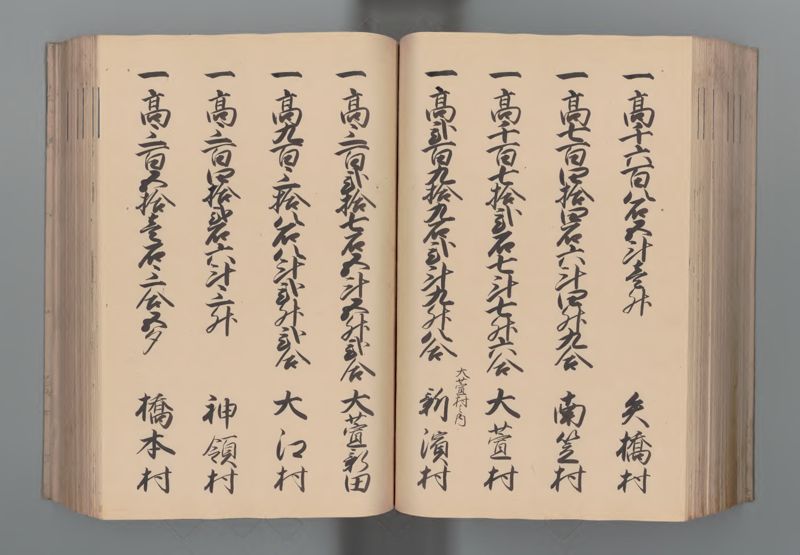 一高千六百八石五斗壱升 矢橋村
一高七百四拾四石六斗四升九合 南笠村
一高千百七拾弐石七斗七升六合 大萱村
大萱村之内
一高弐百九拾九石弐斗九升八合 新濱村
一高三百弐拾七石五斗五升弐合 大萱新田
一高九百三拾八石八斗弐升弐合 大江村
一高三百四拾弐石六斗三升 神領村
一高三百五拾壱石三合五夕 橋本村